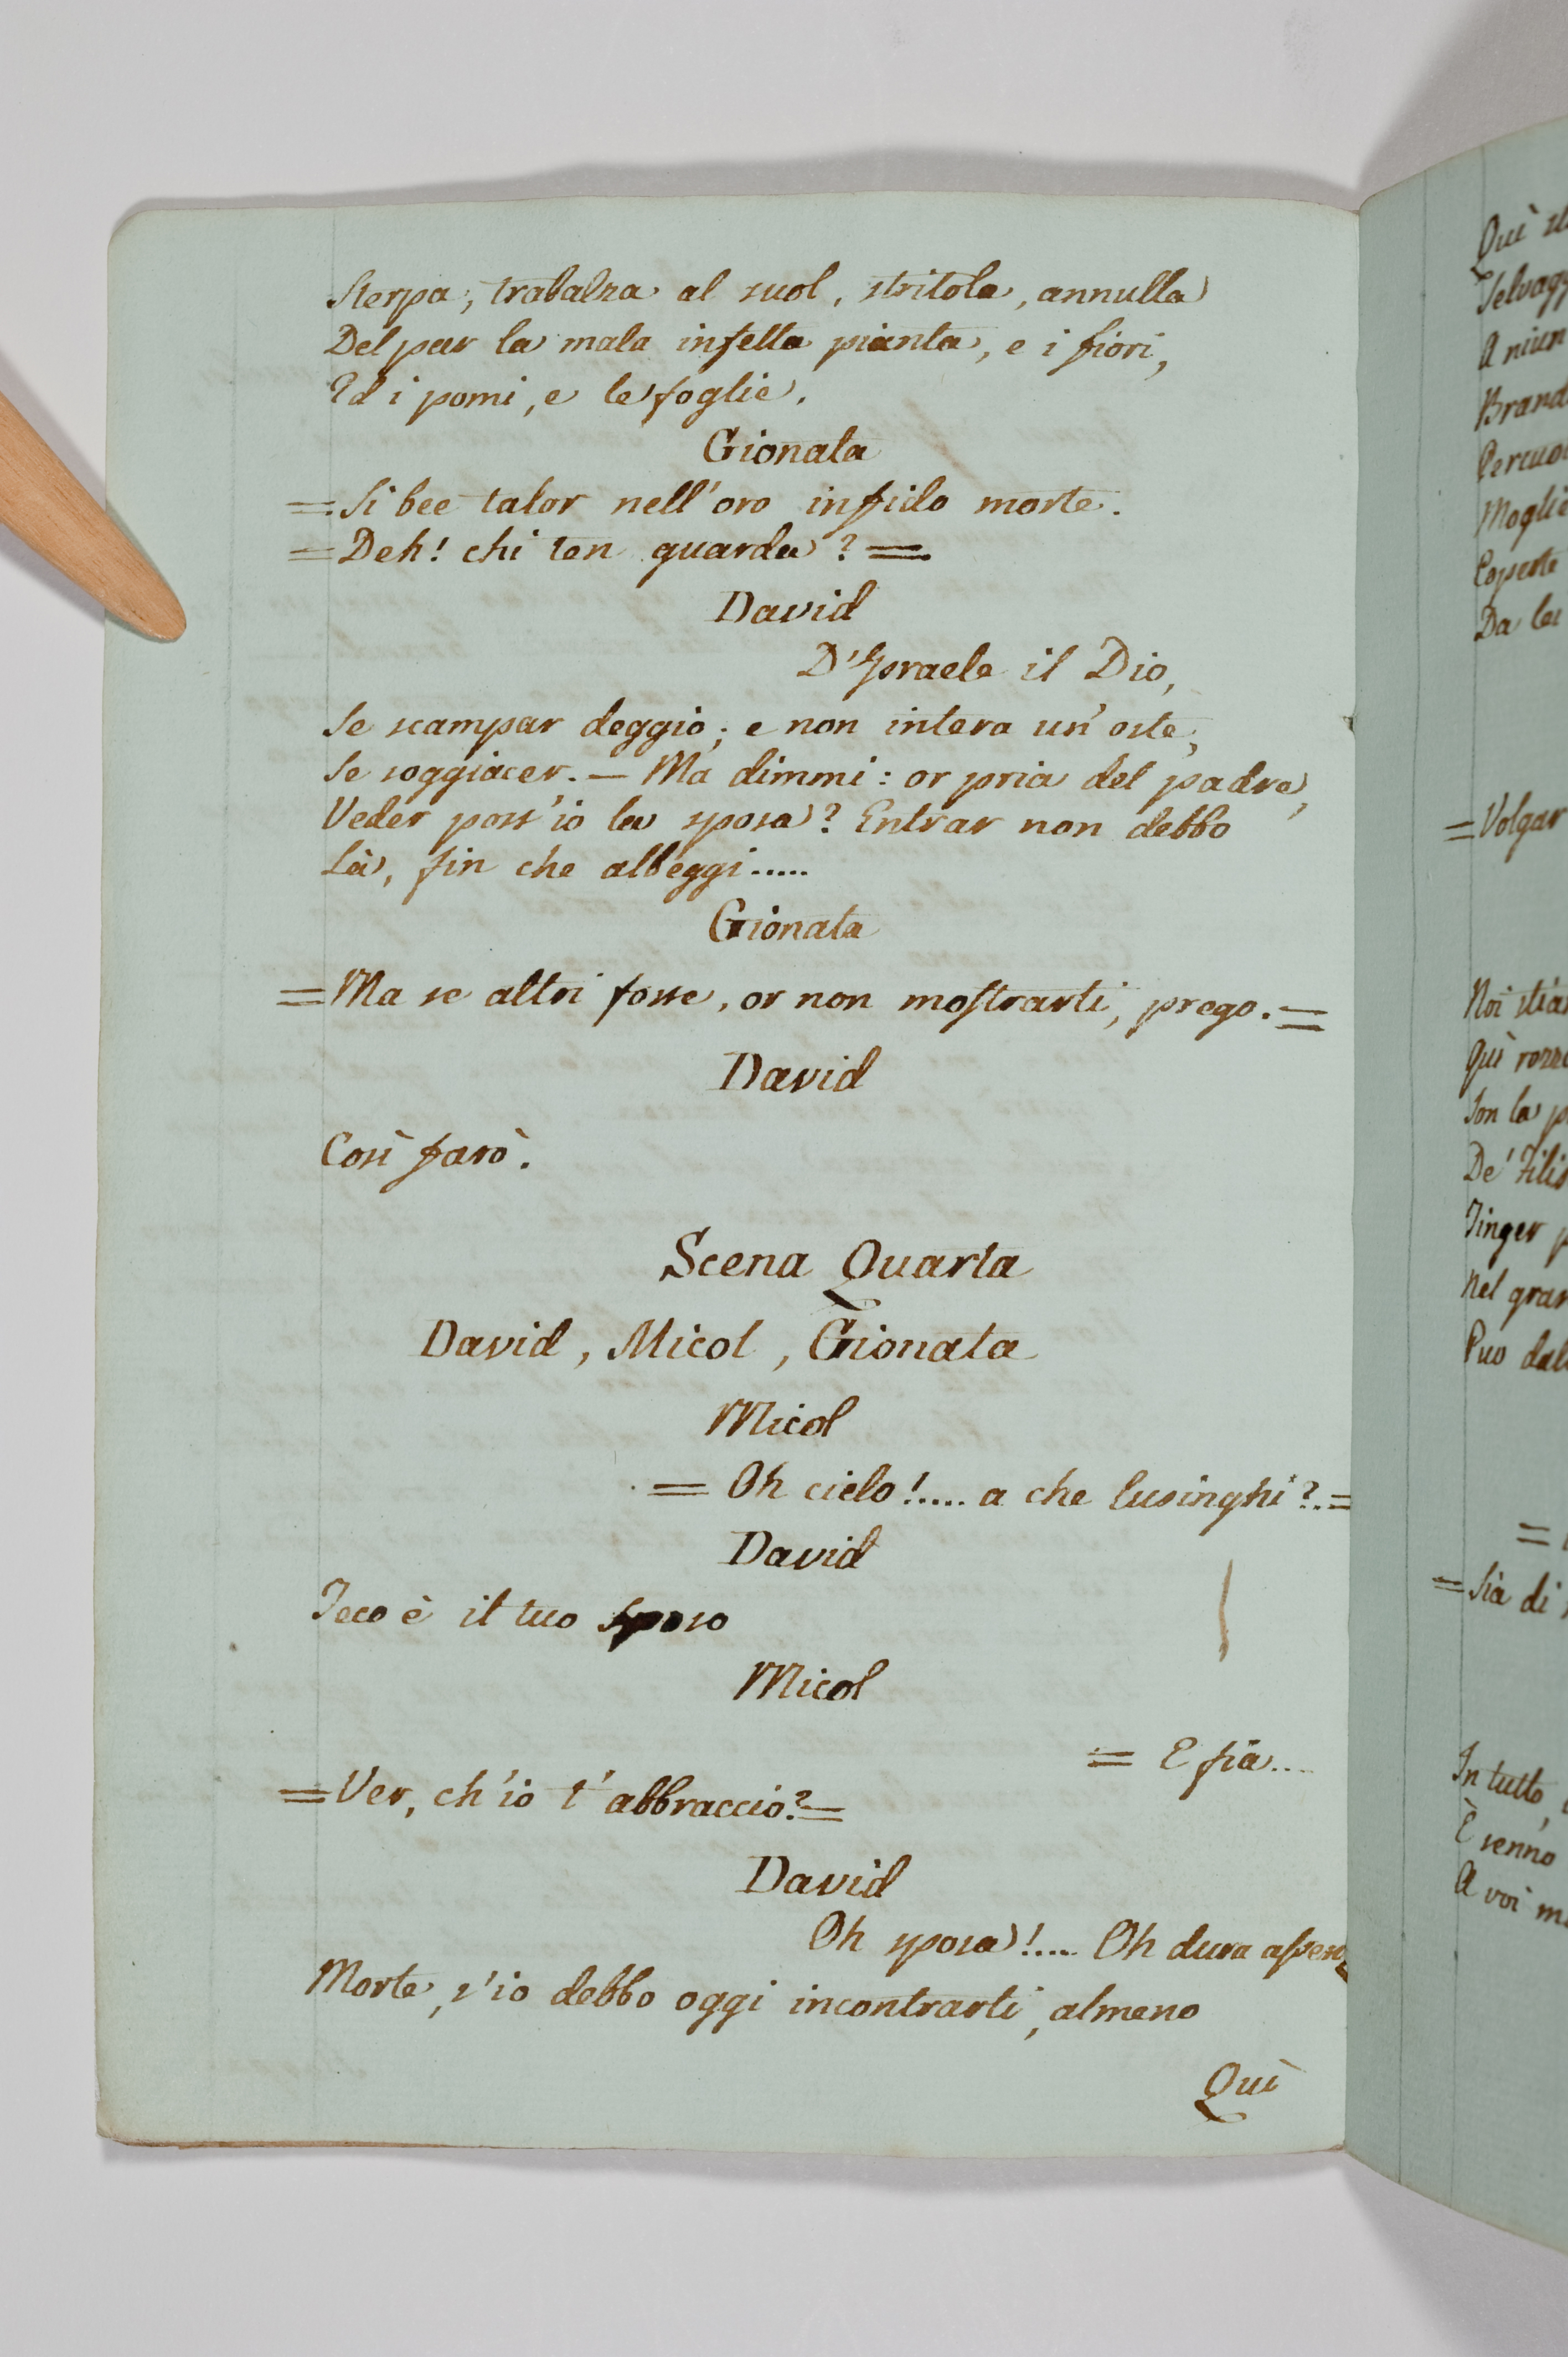 Sterpa, trabalza al suol, stritola, annulla
Del par la mala infetta pianta, e i fiori,
Ed i pomi, e le foglie.
Gionata
= Si bee talor nell'oro infido morte.
= Deh! chi ten guarda? =
David
D'Israele il Dio,
Se scampar deggio; e non intera un'oste,
Se soggiacer. — Ma dimmi: or pria del padre,
Veder poss'io la sposa? Entrar non debbo
Là, fin che albeggi.....
Gionata
= Ma se altri fosse, or non mostrarti, prego. =
David
Così farò.
Scena Quarta
David, Micol, Gionata
Micol
= Oh cielo!..... a che lusinghi? =
David
Teco è il tuo sposo
Micol
= E fia....
= Ver, ch'io t'abbraccio? =
David
Oh sposa!.... Oh dura
Morte, s'io debbo oggi incontrarti, almeno
Quì
Quì
A niun
Moglie
Coperte
Da lei
= Volgar
Quì
Son la
De'
Nel
Può
=
= Sia di
In tutto,
È senno
A voi